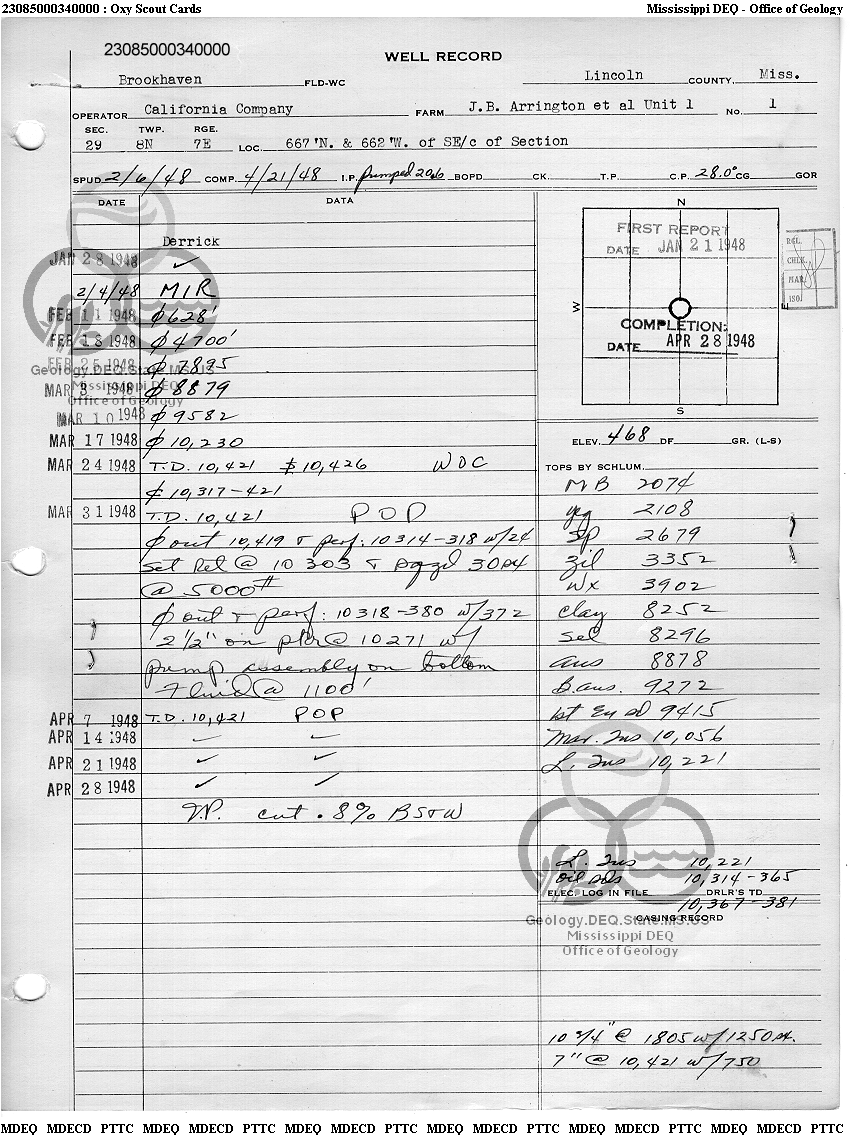 23085000340000 : Oxy Scout Cards Mississippi DEQ - Office of Geology
23085000340000
WELL RECORD
Brookhaven FLD-WC Lincoln COUNTY, Miss.
OPERATOR California Company FARM J.B. Arrington et al Unit 1 No. 1
SEC. TWP. RGE.
29 8N 7E LOC. 667'N. & 662'W. of SE/c of Section
SPUD 2/6/48 COMP. 4/21/48 I.P. pumped BOPD CK. T.P. C.P. 28.0° CG GOR
DATE DATA
Derrick
JAN 28 1948 ✓
2/4/48 MIR
FEB 11 1948 ϕ 628'
FEB 18 1948 ϕ 4700'
FEB 25 1948 ϕ 7895
MAR 3 1948 ϕ 8879
MAR 10 1948 ϕ 9582
MAR 17 1948 ϕ 10,230
MAR 24 1948 T.D. 10,421 10,426 WOC
¢ 10,317-421
MAR 31 1948 T.D. 10,421 POP
ϕ out 10,419 & perf: 10314-318 w/24
Set Ret @ 10303 & sqzd
@ 5000#
ϕ out & perf: 10318-380 w/372
2½" on pkr @ 10271 w/
pump assembly on bottom
Fluid @ 1100'
APR 7 1948 T.D. 10,421 POP
APR 14 1948 ✓ ✓
APR 21 1948 ✓ ✓
APR 28 1948 ✓ ✓
cut .8% BS&W
N
FIRST REPORT
DATE JAN 21 1948
RGL.
CHLK.
MAR.
ISO.
W E
COMPLETION:
DATE APR 28 1948
S
ELEV. 468 DF GR. (L-S)
TOPS BY SCHLUM.
MB 2074
yeg 2108
Sp 2679
zil 3352
Wx 3902
Clay 8252
Sel 8296
aus 8878
B. aus. 9272
1st Eu sd 9415
Mar. Tus 10,056
L. Tus 10,221
L. Tus 10,221
oil sds 10,314-365
ELEC. LOG IN FILE DRLR'S TD
10,367-381
CASING RECORD
10 3/4" @ 1805 w/1250 sx.
7" @ 10,421 w/750
Geology.DEQ.State.MS.US
Mississippi DEQ
Office of Geology
Geology.DEQ.State.MS.US
Mississippi DEQ
Office of Geology
MDEQ MDECD PTTC MDEQ MDECD PTTC MDEQ MDECD PTTC MDEQ MDECD PTTC MDEQ MDECD PTTC MDEQ MDECD PTTC